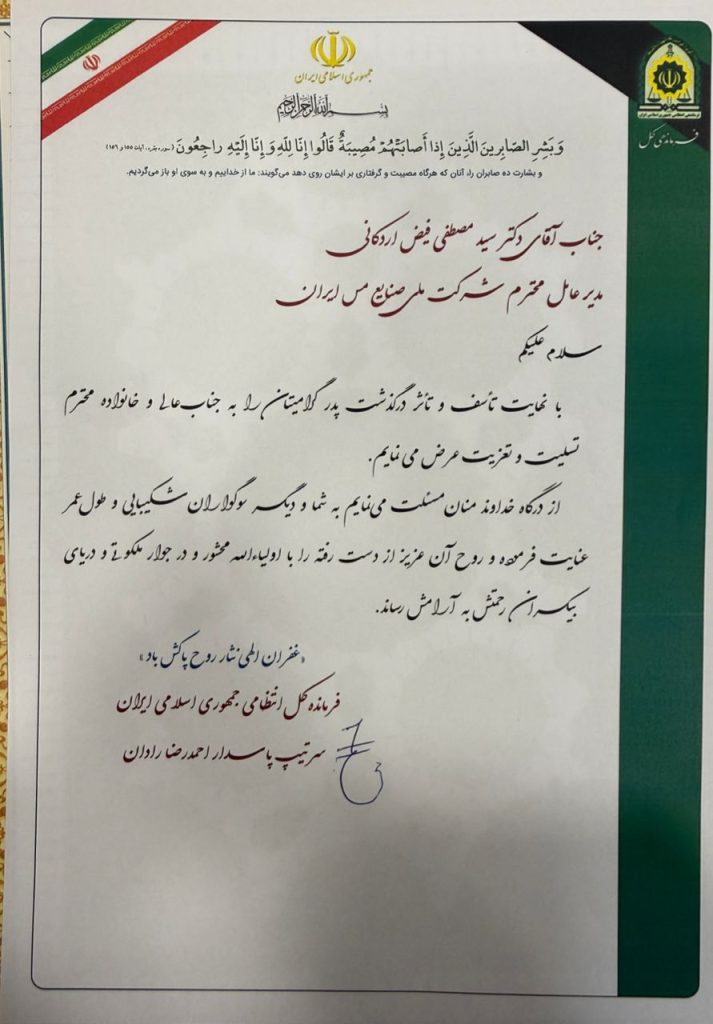 جمهوری اسلامی ایران
بسم الله الرحمن الرحیم
فرماندهی کل
وَ بَشِّرِ الصّابِرینَ الَّذینَ إِذا أَصابَتْهُمْ مُصیبَةٌ قَالُوا إِنّا لِلّهِ وَ إِنّا إِلَیْهِ راجِعُونَ (سوره بقره، آیات ۱۵۵ و ۱۵۶)
و بشارت ده صابران را، آنان که هرگاه مصیبت و گرفتاری بر ایشان روی دهد می‌گویند: ما از خداییم و به سوی او باز می‌گردیم.
جناب آقای دکتر سید مصطفی فیض اردکانی
مدیر عامل محترم شرکت ملی صنایع مس ایران
سلام علیکم
با نهایت تأسف و تأثر درگذشت پدر گرامیتان را به جناب‌عالی و خانواده محترم
تسلیت و تعزیت عرض می نمایم.
از درگاه خداوند منان مسئلت می‌نمایم به شما و دیگر سوگواران شکیبایی و طول عمر
عنایت فرموده و روح آن عزیز از دست رفته را با اولیاءالله محشور و در جوار ملکوتی و دریای
بیکران رحمتش به آرامش رساند.
«غفران الهی نثار روح پاکش باد»
فرمانده کل انتظامی جمهوری اسلامی ایران
سرتیپ پاسدار احمدرضا رادان